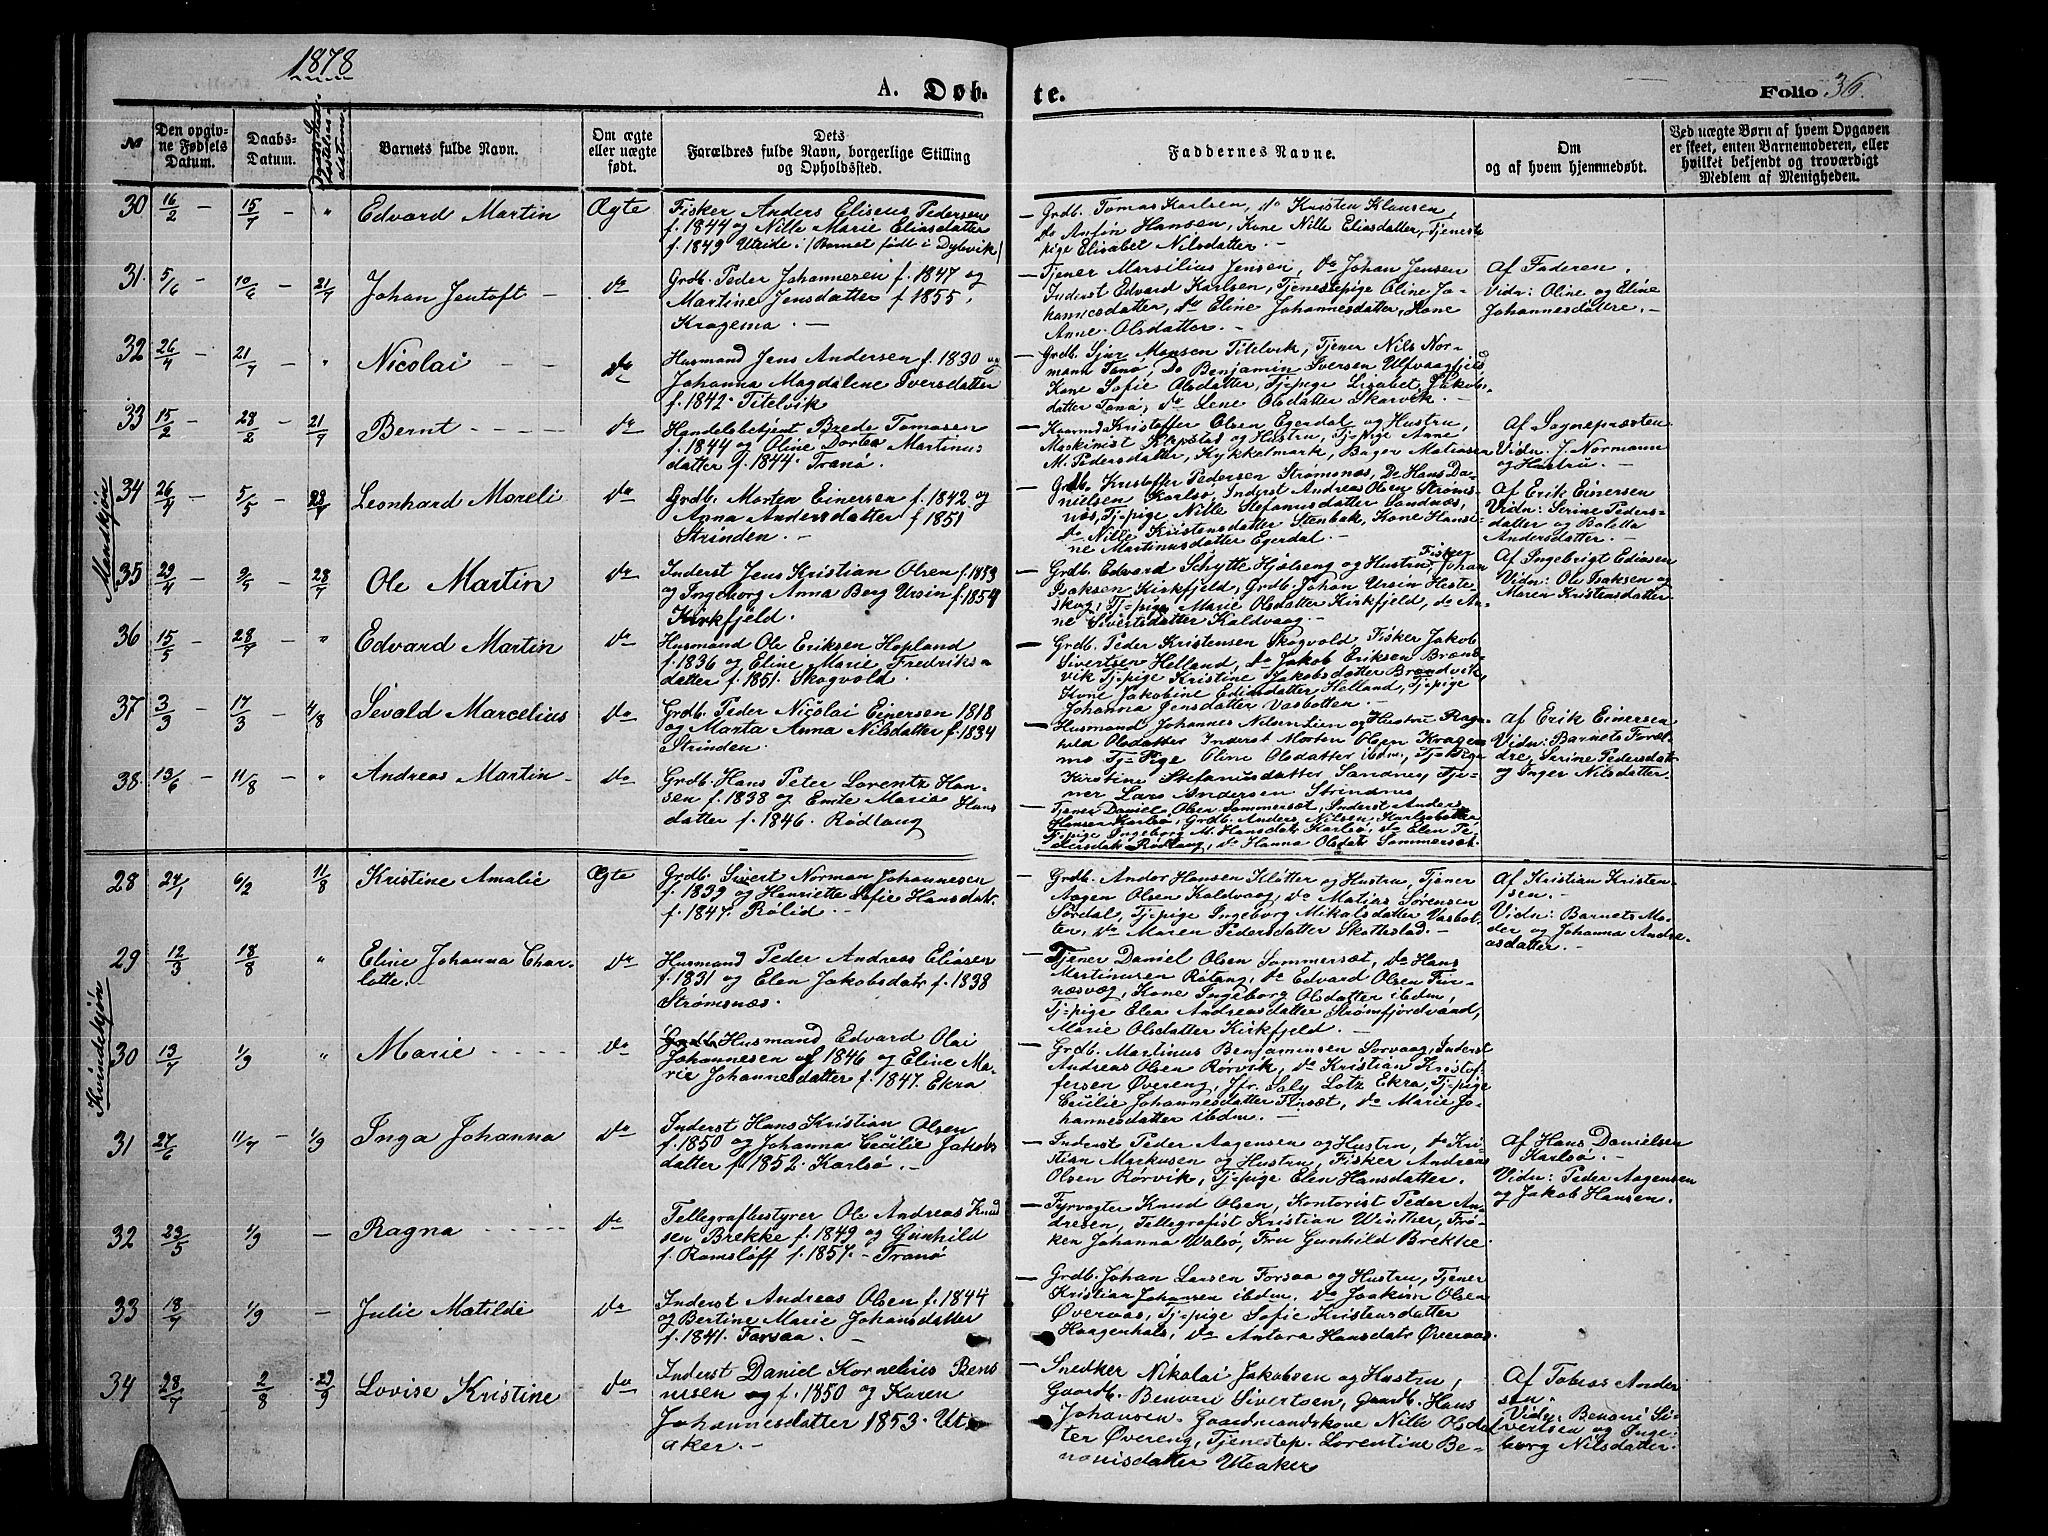 1878
A. Døb-
te.
Folio 36.
No
Den opgiv-
ne Fødsels
Datum.
Daabs-
Datum.
Barnets fulde Navn.
Om ægte
eller uægte
født.
Dets
Forældres fulde Navn, borgerlige Stilling
og Opholdssted.
Faddernes Navne.
Om
og af hvem hjemmedøbt.
Ved uægte Børn af hvem Opgaven
er skeet, enten Barnemoderen, eller
hvilket bekjendt og troværdigt
Medlem af Menigheden.
Mandskjøn
30 16/2 - 15/7 - " Edvard Martin Ægte
Fisker Anders Eliseus Pedersen
f. 1844 og Nille Marie Eliasdatter
f. 1849 Utride i (Barnet født i Dybvik)
- Grdb. Tomas Karlsen, do Kristen Klausen,
do Anfin Hansen, Kone Nille Eliasdatter, Tjenest
pige Elisabet Nilsdatter. -
31. 5/6 - 10/6 - 21/7 Johan Jentoft - do
Grdb. Peder Johannesen f. 1847 og
Martine Jensdatter f 1855,
Kragemo. -
- Tjener Marsilius Jensen, do Johan Jensen
Inderst Edvard Karlsen, Tjenestepige Oline Jo-
hannesdatter, do Eline Johannesdatter, Kone
Anne Olsdatter. -
Af Faderen.
Vidn: Oline og Eline
Johannesdattre. -
32 26/4 - 21/7 " Nicolai - - do
Husmand Jens Andersen f. 1830 og
Johanna Magdalene Iversdatter
f. 1842. Titelvik
- Grdb. Sjur Monsen Titelvik, Tjener Nils Nor-
mann Tanø, Do Benjamin Iversen Ulfvaagfjed,
Kone Sofie Olsdatter, Tj-pige Lisabet Jakobs-
datter Tanø, do Lene Olsdatter Skarvik. -
33 15/2 - 28/2 21/7 Bernt - - - - - do
Handelsbetjent Brede Tomasen
f. 1844 og Oline Dortea Martinus-
datter f. 1844. Tranø.
- Kaarmd Kristoffer Olsen Egerdal og Hustru,
Maskinist Kapstad og Hustru, Tj-pige Anne
M. Pedersdatter, Kykkelmark, Bager Matiasen
Af Sognepræsten
Vidn. J. Normann
og Hustru. -
34 26/4 - 5/5 28/7 Leonhard Moreli do
Grdb. Morten Einersen f. 1842 og
Anna Andersdatter f 1851
Strinden. -
- Grdb. Kristoffer Pedersen Strømsnæs, Do Hans Da-
nielsen Karlsø, Inderst Andreas Olsen Strøms-
næs, Tj-pige Nille Stefanusdatter Sandnæs,
do Nille Kristensdatter Stenbak, Kone Hansi-
ne Martinusdatter Egerdal. -
Af Erik Einersen
Vidn: Serine Peders-
datter og Boletta
Andersdatter. -
35 29/4 - 9/5 - 28/7 Ole Martin do
Inderst Jens Kristian Olsen f. 1853
og Ingeborg Anna Berg Ursin f. 1854
Kirkfjeld.
- Grdb. Edvard Schytte Hjelseng og Hustru, Fisker Johan
Isaksen Kirkfjeld, Grdb. Johan Ursin Heste-
skog, Tj-pige Marie Olsdatter Kirkfjeld, do An-
ne Sivertsdatter Kaldvaag. -
Af Ingebrigt Ediasen
Vidn: Ole Isaksen og
Maren Kristensdatter
36 15/5 - 28/7 - " Edvard Martin do
Husmand Ole Eriksen Hopland
f. 1836 og Eline Marie Fredriks-
datter f. 1851. Skogvold.
- Grdb. Peder Kristensen Skogvold Fisker Jakob
Sivertsen Helland, do Jakob Eriksen Brænd-
vik Tj-pige Kristine Jakobsdatter Brændvik,
Kone Jakobine Edisdatter Helland, Tj-pige
Johanna Jensdatter Vasbotten. -
37 3/3 - 17/3 - 4/8 Sevald Marcelius do
Grdb. Peder Nicolai Einersen 1818
og Marta Anna Nilsdatter f. 1834
Strinden.
- Husmand Johannes Nilsen Lien og Hustru Ragn-
hild Olsdatter Inderst Morten Olsen Kragen
mo Tj-Pige Oline Olsdatter ibdm, Tj-Pige
Kirstine Stefanusdatter Sandnes, Tje-
ner Lars Andersen Strindnes
Af Erik Einersen
Vidn: Barnets Foræl-
dre, Serine Pedersdatt
og Inger Nilsdatter
38. 13/6 - 11/8 - " Andreas Martin - do
Grdb. Hans Peter Lorentz Han-
sen f. 1838 og Emte Maria Hans
datter f. 1846. Rødlang
- Tjener Daniel Olsen Sommersæt, Inderst Anders
Hansen Karlsø, Grdb. Anders Nilsen, Karlsøbotten
Tj-pige Ingeborg M. Hansdatr Karlsø, do Elen Pe-
dersdatr Rødlang, do Hanna Olsdatr Sommersæt.
Kvindekjøn
28 24/1 6/2 11/8 Kristine Amalie Ægte
Grdb. Sivert Norman Johannesen
f. 1839 og Henriette Sofie Hansdatr
f. 1847. Rølid. -
- Grdb. Andor Hansen Kløtter og Hustru, Tjener
Aagen Olsen Kaldvaag, do Matias Sørensen
Sørdal, Tj-pige Ingeborg Mikalsdatter Vasbot-
ten, do Maren Pedersdatter Skottestad. -
Af Kristian Kristen-
sen. -
Vidn: Barnets Mo-
der og Johanna Andre-
asdatter. -
29 12/3 18/8 " Eline Johanna Char-
lotte. - do
Husmand Peder Andreas Eliasen
f. 1831 og Elen Jakobsdatr f. 1838
Strømsnæs.
- Tjener Daniel Olsen Sommersæt, do Hans
Martinusen Røtang, do Edvard Olsen Fin-
næsvæg, Kone Ingeborg Olsdatter ibdm,
Tj-pige Elea Andreasdatter Strømfjordvand,
Marie Olsdatter Kirkfjeld. -
30 13/7 1/9 " Marie - - - - do
Grdb. Husmand Edvard Olai
Johannesen f 1846 og Eline Ma-
rie Johannesdatter f. 1847. Ekra
- Grdb. Martinus Benjaminsen Sorvaag, Inderst
Andreas Olsen Rørvik, do Kristian Kristof-
fersen Øvereng, Jfr. Saly Lotz Ekra, Tj-pige
Cecilie Johannesdatter Finsæt, do Marie Jo-
hannesdatter ibdm. -
31 27/6 11/7 - 1/9 Inga Johanna do
Inderst Hans Kristian Olsen
f. 1850 og Johanna Cecilie Jakobs
datter f 1852. Karlsø. -
- Inderst Peder Aagensen og Hustru, do Kri-
stian Markusen og Hustru, Fisker Andreas
Olsen Rørvik, Tj-pige Elen Hansdatter.
Af Hans Danielsen
Karlsø. -
Vidn: Peder Aagensen
og Jakob Hansen.
32 23/5 1/9 - Ragna - - - - - do
Tellegrafbestyrer Ole Andreas Knud
sen Brekke f. 1849 og Gunhild
f. Romsløff f. 1857. - Tranø
- Fyrvogter Knud Olsen, Kontorist Peder An-
dresen, Tellegrafist Kristian Winther, Frø-
ken Johanna Walsø, Fru Gunhild Brekke.
33 18/7 1/9 - Julie Matilde do
Inderst Andreas Olsen f. 1844
og Bertine Marie Johansdatter
f. 1841. Forsaa. -
- Grdb. Johan Larsen Forsaa og Hustru, Tjener
Kristian Johansen ibdm. do Joakim Olsen
Øveraas, Tj-pige Sofie Kristensdatter
Haagenhals, do Antora Hansdatr Øveraas.
34 28/7 2/8 29/9 Lovise Kristine do
Inderst Daniel Kornelius Beno
nisen og f. 1850 og Karen
Johannesdatter 1853. Ute-
aker. -
- Snedker Nikolai Jakobsen og Hustru,
Gaardb. Benoni Sivertsen, Gaardb. Hans
Johansen. Gaardmandskone Nille Olsdat
ter Øvereng, Tjenestep. Lorentine Be-
nonisdatter Uteaker
Af Tobias Ander
sen.
Vidn: Benoni Si-
vertsen og Inge-
borg Nilsdatter.